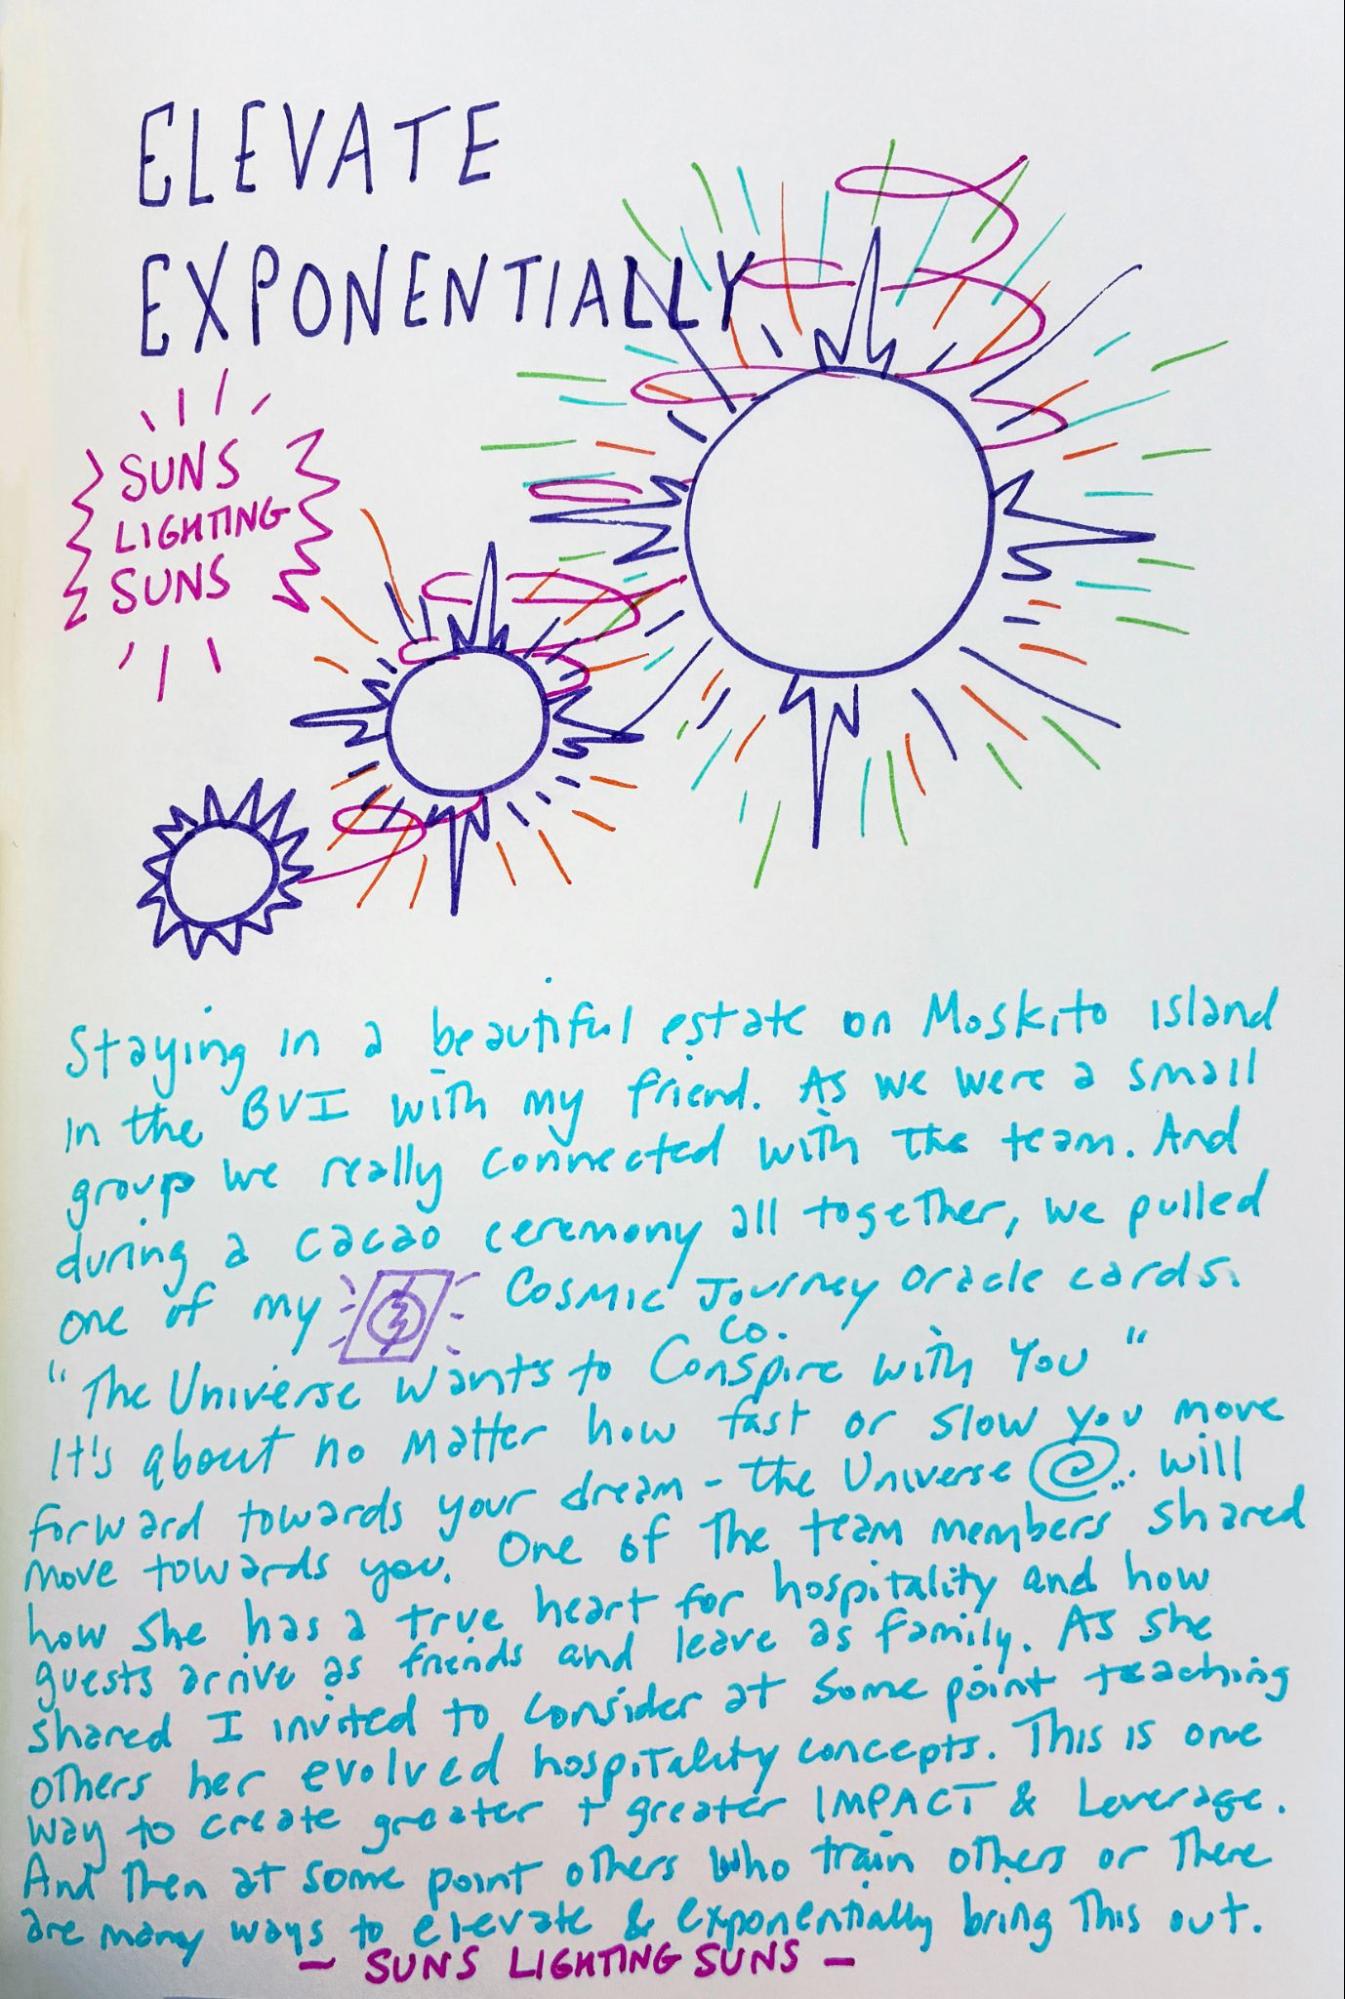 ELEVATE
EXPONENTIALLY
SUNS
LIGHTING
SUNS
Staying in a beautiful estate on Moskito Island
in the BVI with my friend. As we were a small
group we really connected with the team. And
during a cacao ceremony all together, we pulled
one of my Cosmic Journey Oracle cards.
Co.
"The Universe Wants to Conspire with You"
It's about no matter how fast or slow you move
forward towards your dream - the Universe will
move towards you. One of the team members shared
how she has a true heart for hospitality and how
guests arrive as friends and leave as family. As she
shared I invited to consider at some point teaching
others her evolved hospitality concepts. This is one
way to create greater + greater IMPACT & Leverage.
And then at some point others who train others or there
are many ways to elevate & exponentially bring this out.
- SUNS LIGHTING SUNS -